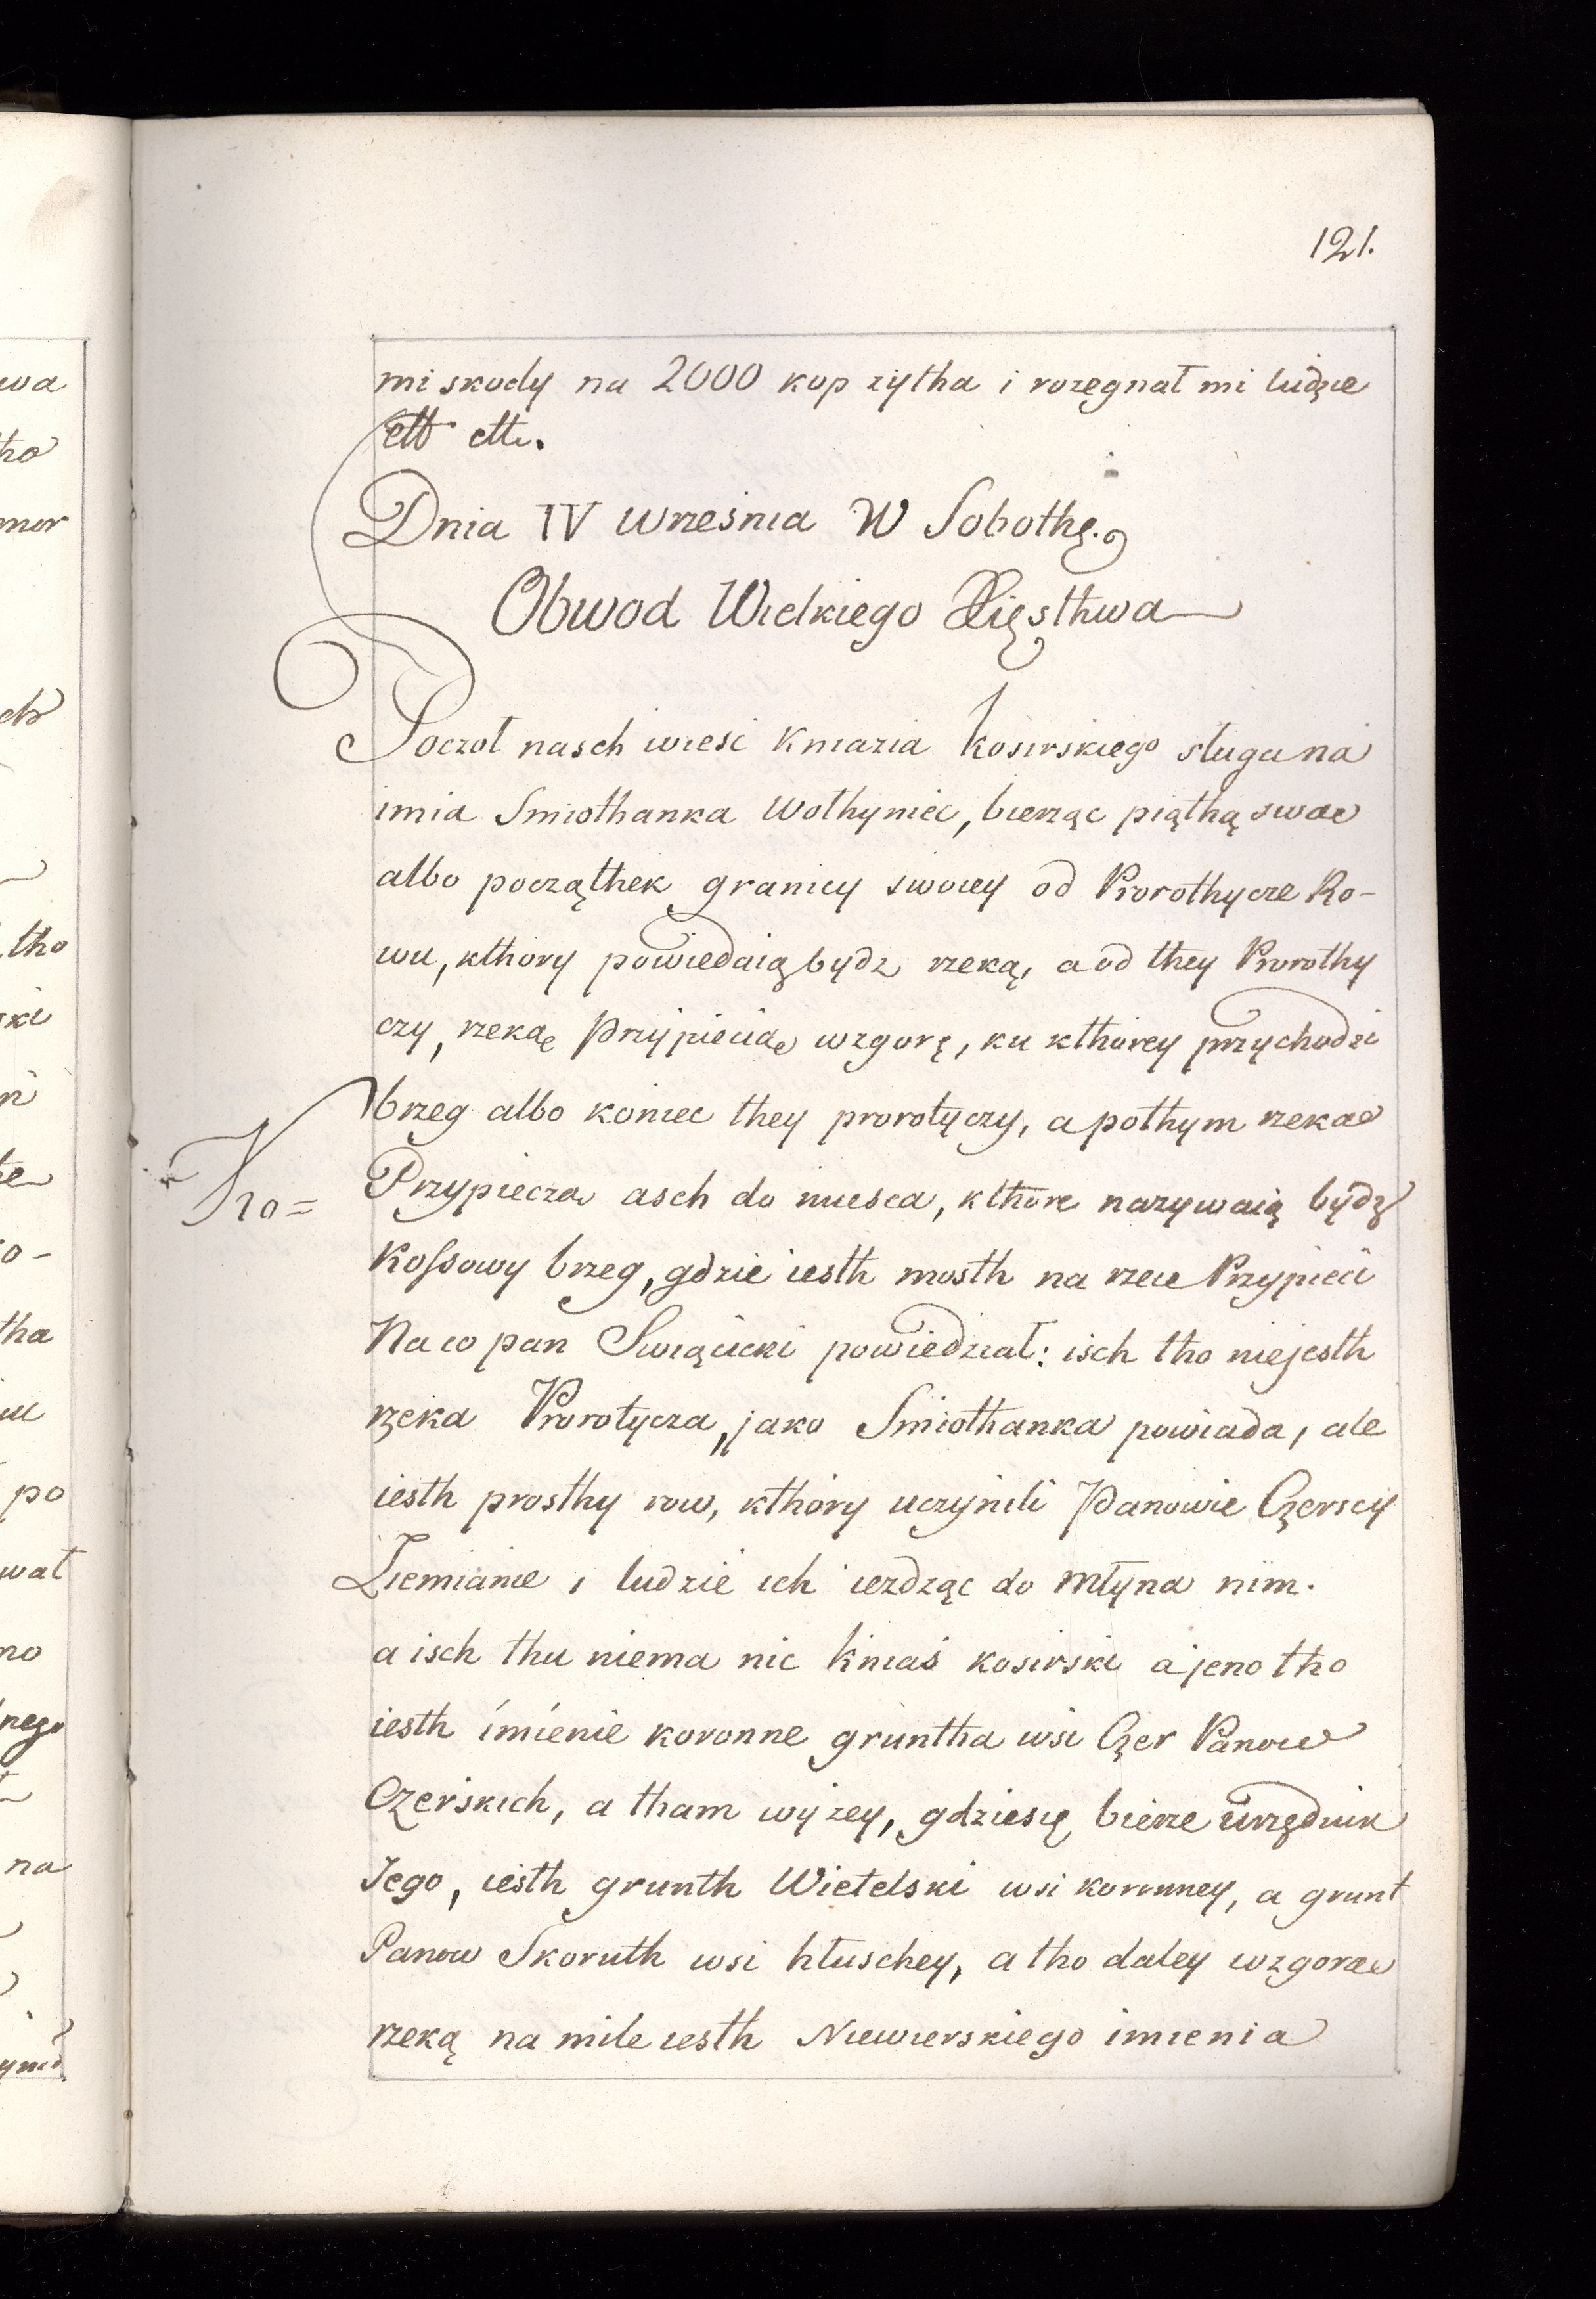 121.
mi skody na 2000 kop zytha i rozegnał mi ludzie
ett ett.
Dnia IV Wrzesnia W Sobothę.
Obwod Wielkiego Xięsthwa
Poczoł nasch wiesc Kniazia Kosirskiego sługa na
imia Smiothanka Wołhyniec, bierząc piąthą swae
albo począthek granicy swoiey od Prorothycze Ro-
wu, kthory powiedaią bydz rzeką, a od they Prorothy
czy, rzekaę Przypieciae wzgorę, ku kthorey przychodzi
brzeg albo koniec they prorotyczy, a pothym rzekae
Kro=
Przypiecza asch do miesca, kthore nazywaią bydz
Kossowy brzeg, gdzie iesth mosth na rzece Przypieci
Na co pan Swiącicki powiedział: isch tho niejesth
rzeka Prorotycza, jako Smiothanka powiada, ale
iesth prosthy row, kthory uczynili Panowie Czerscy
Ziemianie i ludzie ich iezdząc do młyna nim.
a isch thu niema nic kniaś kosirski a jeno tho
iesth imienie koronne gruntha wsi Czer Panow
Czerskich, a tham wyzey, gdziesię bierze urzędnik
Jego, iesth grunth Wietelski wsi koronney, a grunt
Panow Skoruth wsi hłuschey, a tho daley wzgorae
rzeką na mile iesth Niewierskiego imienia